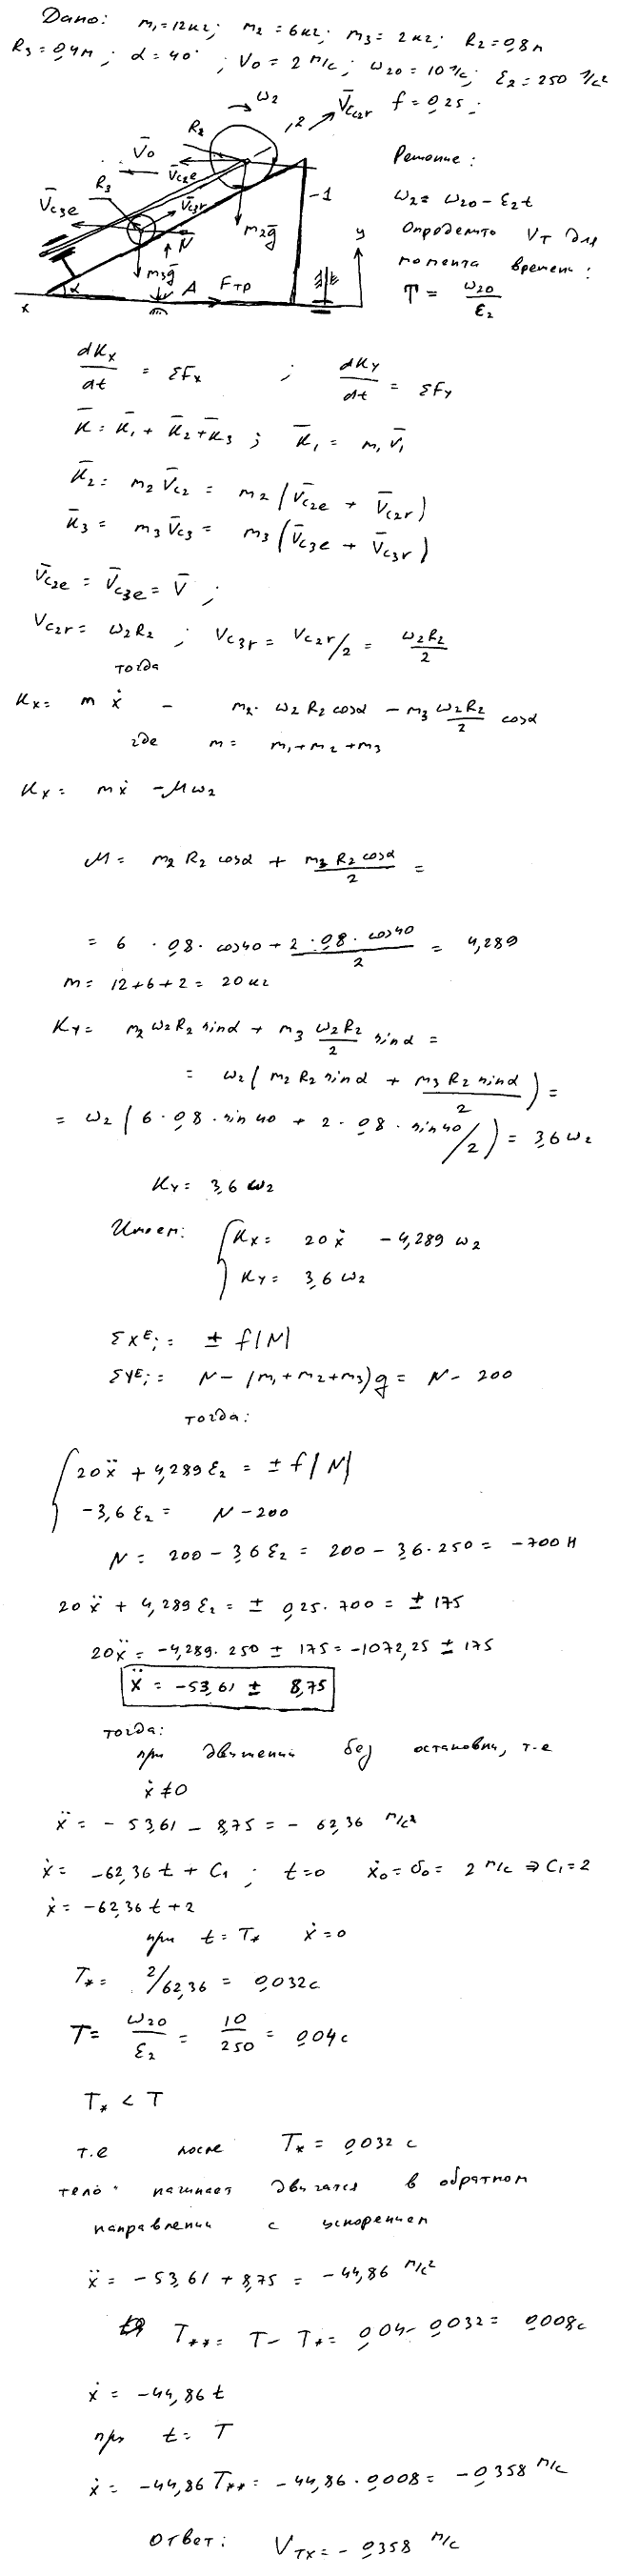 Дано: m₁=12кг; m₂=6кг; m₃=2кг; R₂=0,8м
R₃=0,4м; α=40°; V₀=2 м/с; ω₂₀=10 1/с; ε₂=250 1/с²
f=0,25;
ω₂
V̄c₂r
R₂
2
V̄₀
V̄c₂e
R₃
V̄c₃e
V̄c₃r
N̄
m₂ḡ
m₃ḡ
1
y
α
A
Fтр
x
Решение:
ω₂=ω₂₀-ε₂t
Определить V_T для
момента времени:
T = ω₂₀/ε₂
dKx/dt = ΣFx ; dKy/dt = ΣFy
K̄=K̄₁+K̄₂+K̄₃ ; K̄₁=m₁V̄₁
K̄₂=m₂V̄c₂=m₂(V̄c₂e+V̄c₂r)
K̄₃=m₃V̄c₃=m₃(V̄c₃e+V̄c₃r)
V̄c₂e=V̄c₃e=V̄ ;
Vc₂r=ω₂R₂ ; Vc₃r=Vc₂r/2=ω₂R₂/2
тогда
Kx= m ẋ - m₂·ω₂R₂cosα - m₃ ω₂R₂/2 cosα
где m= m₁+m₂+m₃
Kx= mẋ -Mω₂
M= m₂R₂cosα + m₃R₂cosα/2 =
= 6·0,8·cos40+2·0,8·cos40/2 = 4,289
m= 12+6+2=20кг
Ky= m₂ω₂R₂sinα+m₃ ω₂R₂/2 sinα =
= ω₂(m₂R₂sinα + m₃R₂sinα/2) =
= ω₂(6·0,8·sin40 + 2·0,8·sin40/2) = 3,6ω₂
Ky= 3,6ω₂
Имеем: { Kx= 20ẋ -4,289ω₂
Ky= 3,6ω₂
ΣXᴱᵢ= ± f|N|
ΣYᴱᵢ= N-(m₁+m₂+m₃)g= N-200
тогда:
{ 20ẍ+4,289ε₂=±f|N|
-3,6ε₂= N-200
N= 200-3,6ε₂=200-3,6·250=-700Н
20ẍ+4,289ε₂=± 0,25·700=±175
20ẍ=-4,289·250±175=-1072,25±175
ẍ=-53,61± 8,75
тогда:
при движении без остановки, т.е
ẋ≠0
ẍ= -53,61-8,75=-62,36 м/с²
ẋ= -62,36t+C₁ ; t=0 ẋ₀=υ₀=2 м/с ⇒C₁=2
ẋ=-62,36t+2
при t=T* ẋ=0
T*= 2/62,36=0,032с
T= ω₂₀/ε₂ = 10/250 = 0,04с
T* < T
т.е после T*=0,032 с
тело начинает двигатся в обратном
направлении с ускорением
ẍ= -53,61+8,75= -44,86 м/с²
T**= T-T*= 0,04-0,032= 0,008с
ẋ= -44,86t
при t= T
ẋ= -44,86T**=-44,86·0,008=-0,358 м/с
Ответ: V_Tx=-0,358 м/с